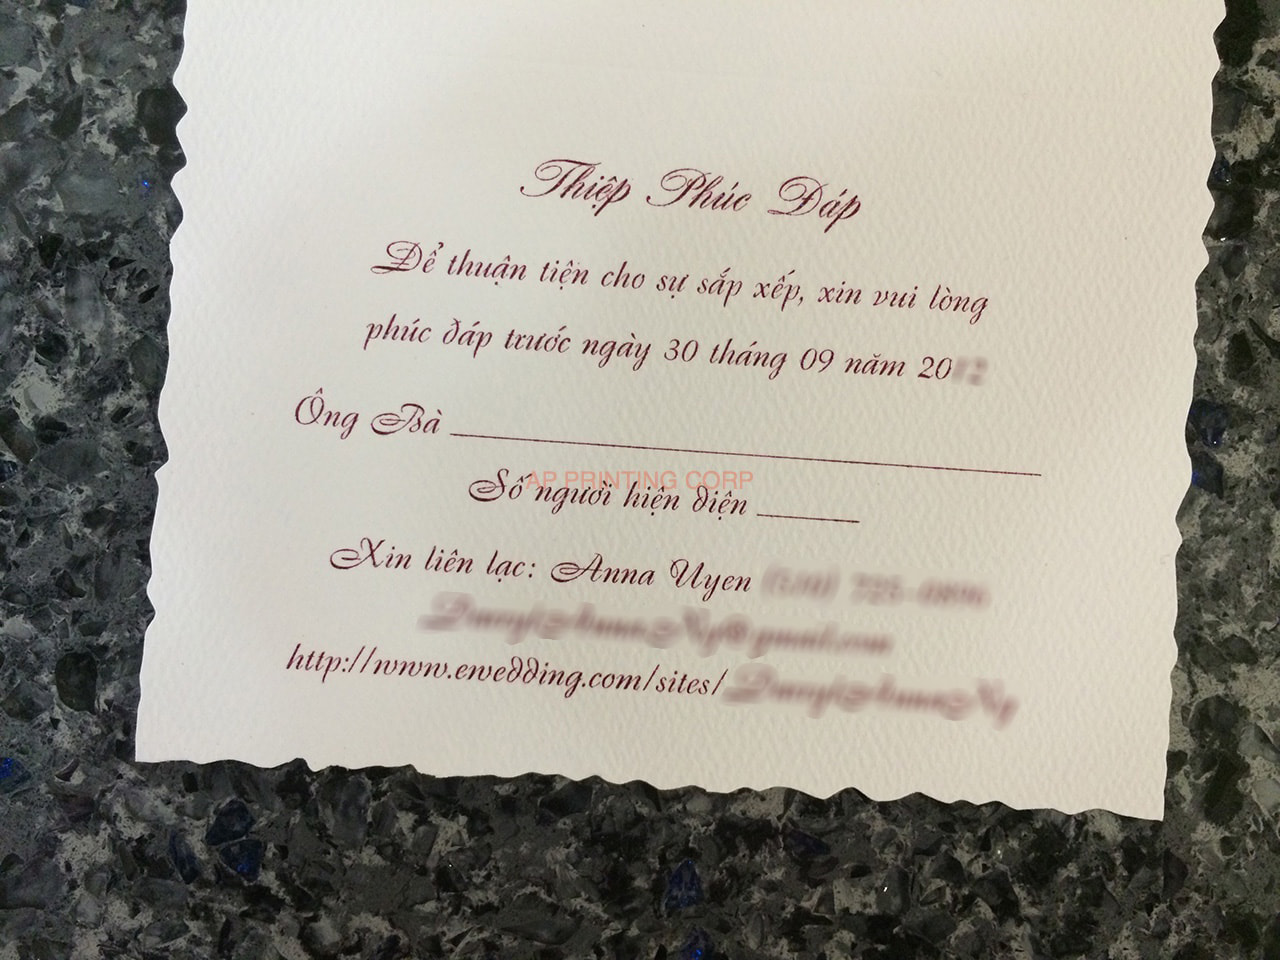 Thiệp Phúc Đáp
Để thuận tiện cho sự sắp xếp, xin vui lòng
phúc đáp trước ngày 30 tháng 09 năm 20
Ông Bà
AP PRINTING CORP
Số người hiện diện
Xin liên lạc: Anna Uyen
http://www.ewedding.com/sites/